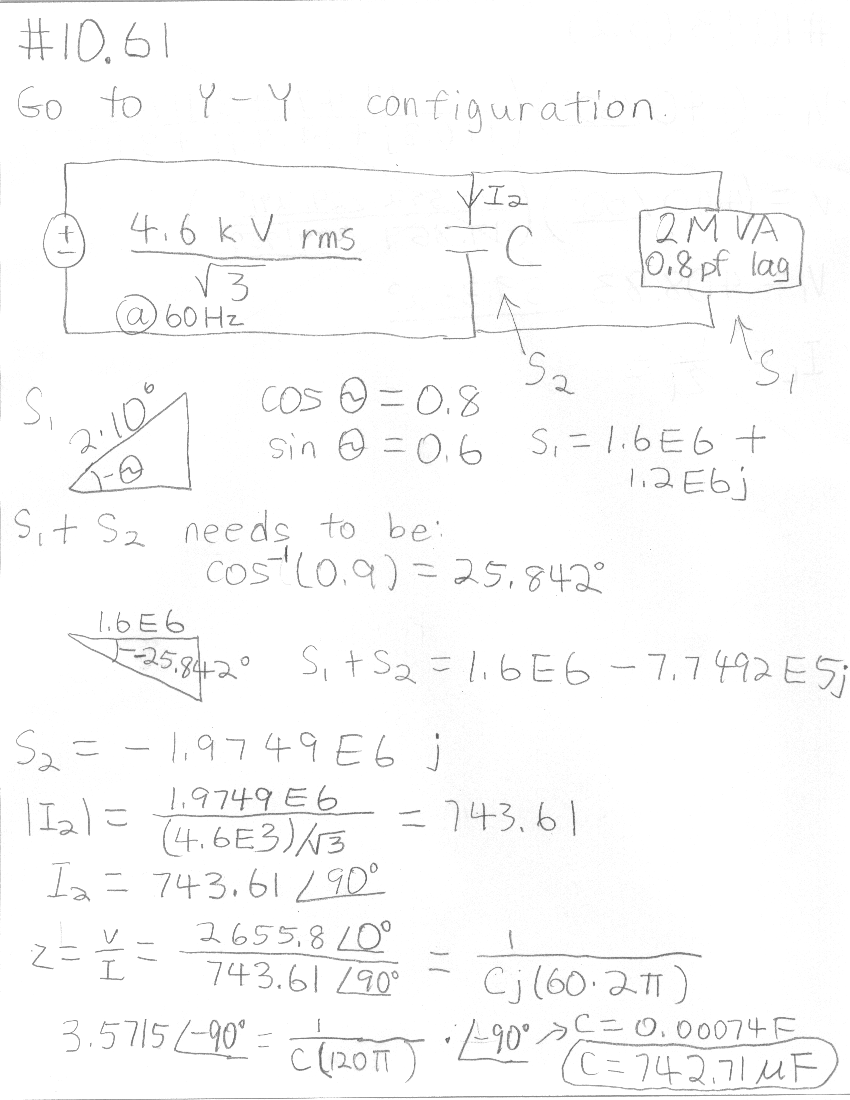 #10.61
Go to Y-Y configuration.
I₂
+
−
4.6 kV rms
√3
@ 60Hz
C
2 MVA
0.8 pf lag
S₂
S₁
S₁
2·10⁶
θ
cos θ = 0.8
sin θ = 0.6
S₁ = 1.6E6 +
1.2E6j
S₁ + S₂ needs to be:
cos⁻¹(0.9) = 25.842°
1.6E6
-25.842°
S₁ + S₂ = 1.6E6 - 7.7492E5j
S₂ = -1.9749E6 j
|I₂| = 1.9749E6 / (4.6E3)/√3 = 743.61
I₂ = 743.61 ∠90°
z = V/I = 2655.8 ∠0° / 743.61 ∠90° = 1 / Cj(60·2π)
3.5715 ∠-90° = 1 / C(120π) · ∠-90° → C = 0.00074F
C = 742.71 μF